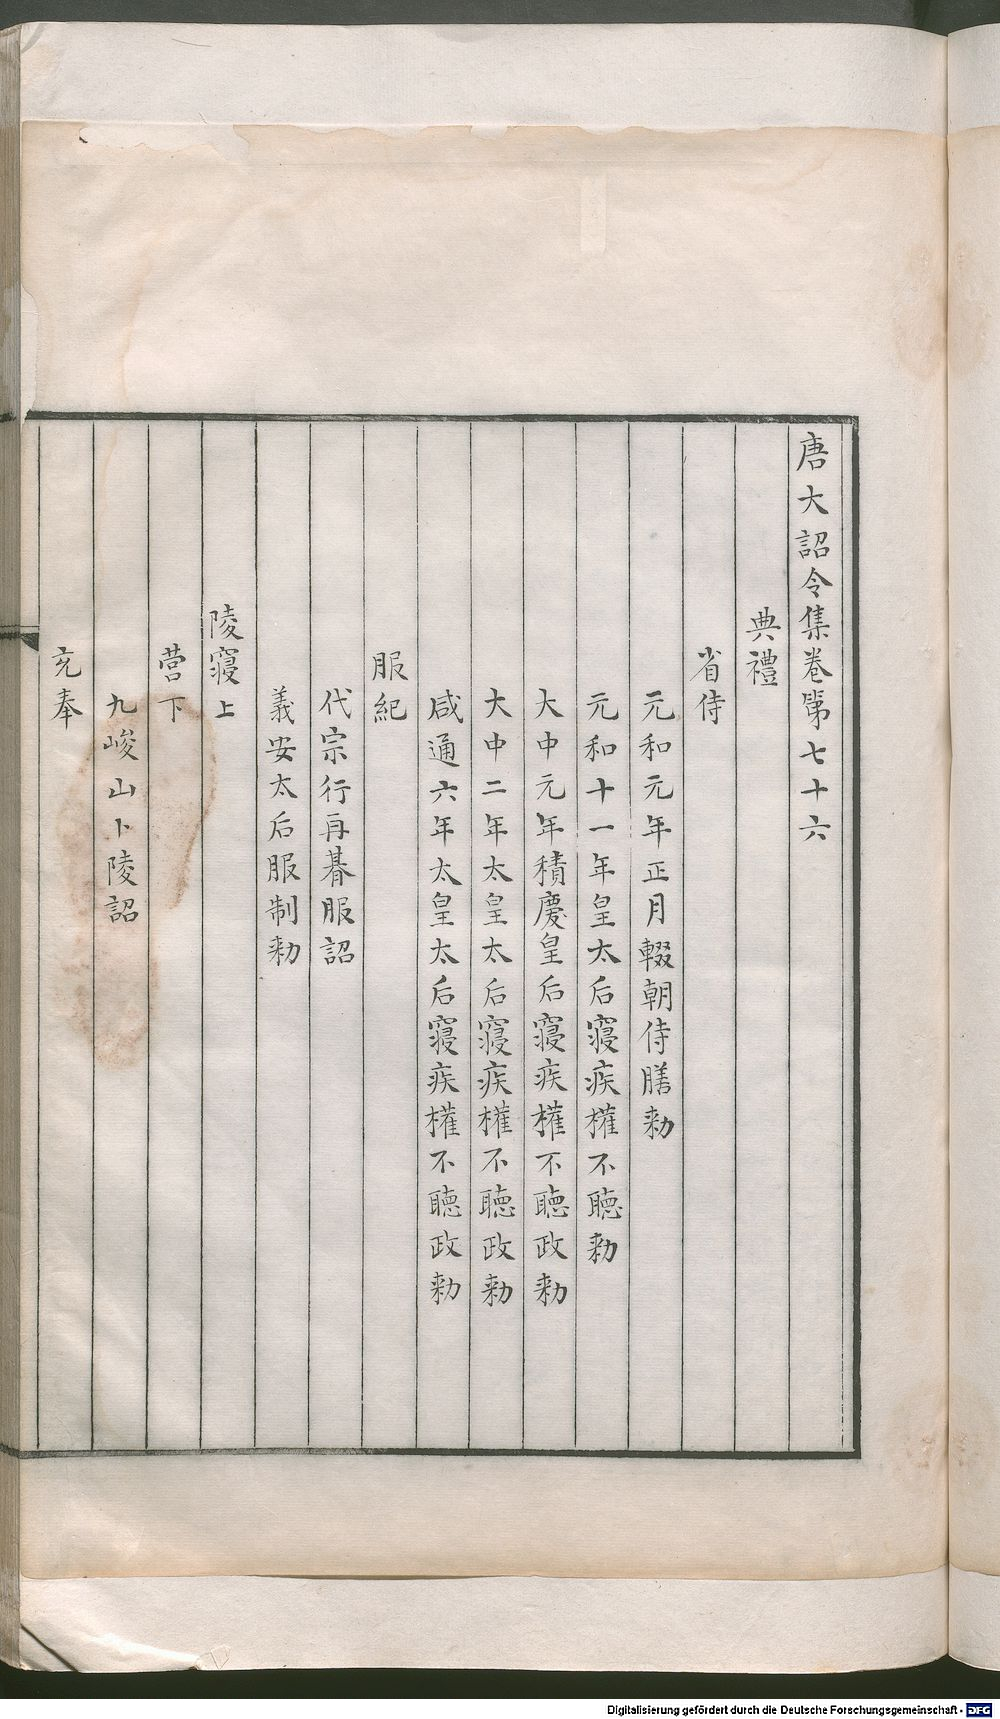 唐大詔令集卷第七十六
典禮
省侍
元和元年正月輟朝侍膳勑
元和十一年皇太后寢疾權不聽勑
大中元年積慶皇后寢疾權不聽政勑
大中二年太皇太后寢疾權不聽政勑
咸通六年太皇太后寢疾權不聽政勑
服紀
代宗行再朞服詔
義安太后服制勑
陵寢上
營下
九峻山卜陵詔
充奉
Digitalisierung gefördert durch die Deutsche Forschungsgemeinschaft - DFG